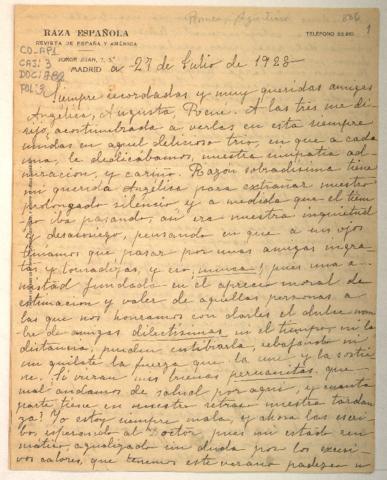 Romero, Agustina 806
1
RAZA ESPAÑOLA
REVISTA DE ESPAÑA Y AMÉRICA
TELÉFONO 53.810.
CO-AP1
CAJ: 3
DOC: 782
FOL: 3
JORGE JUAN, 7, 3.º
MADRID a 27 de Julio de 1928
Siempre recordadas y muy queridas amigas
Angélica, Augusta, Rene. A las tres me di-
rijo, acostumbrada a verlas en esta siempre
unidas en aquel delicioso trio, en que a cada
una, le dedicábamos, nuestra simpatía ad-
miración, y cariño. Razón sobradísima tiene
mi querida Angélica para extrañar nuestro
prolongado silencio y a medida que el tiem-
po iba pasando, así era nuestra inquietud
y desasosiego, pensando en que a sus ojos
teníamos que pasar por unas amigas ingra-
tas y tornadizas, y eso, nunca! pues una a-
mistad fundada en el aprecio moral de
estimación y valer de aquellas personas a
las que nos honramos con darles el dulce nom-
bre de amigas dilectísimas ni el tiempo, ni la
distancia, pueden entibiarla, rebajando ni
un quilate la fuerza que la une y la sostie-
ne. Si vieran mis buenas peruanitas que
mal andamos de salud por aquí, y cuanta
parte tiene en nuestro retraso nuestra tardan-
za! Yo estoy siempre mala, y ahora las escri-
bo esperando al doctor, pues mi estado reu-
mático agudizado sin duda por los excesi-
vos calores, que tenemos este verano padezco